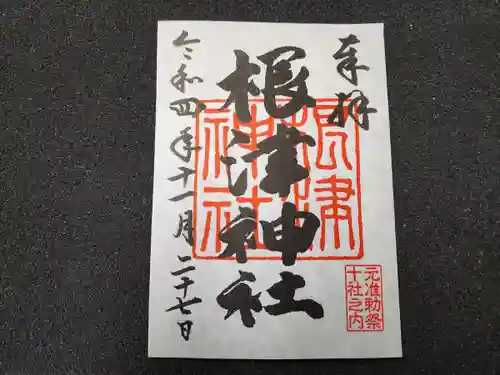 奉拝
根津神社
令和四年十一月二十七日
根津神社
元准勅祭
十社之内